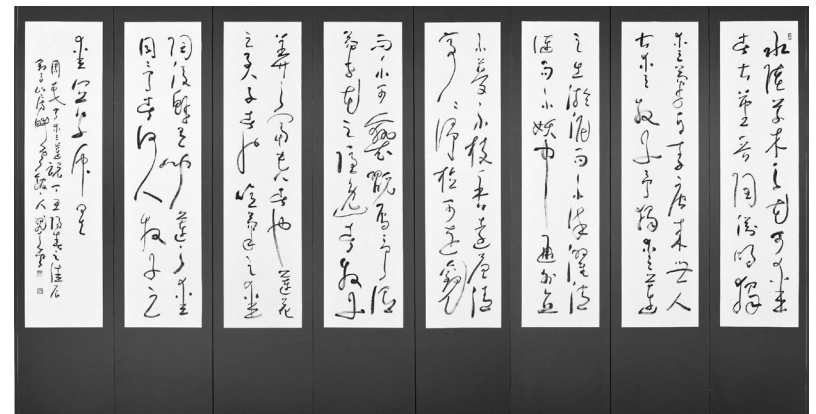 水陸草木之花可愛
者甚蕃晉陶淵明獨
愛菊自李唐來世人
甚愛牡丹予獨愛蓮
之出淤泥而不染濯清
漣而不妖中通外直
不蔓不枝香遠益清
亭亭淨植可遠觀
而不可褻翫焉予謂
菊花之隱逸者牡丹
花之富貴者也蓮花
之君子者也噫菊之愛
陶後鮮有聞蓮之愛
同予者何人牡丹之
愛宜乎衆矣
愛蓮說丁丑陽春之佳辰